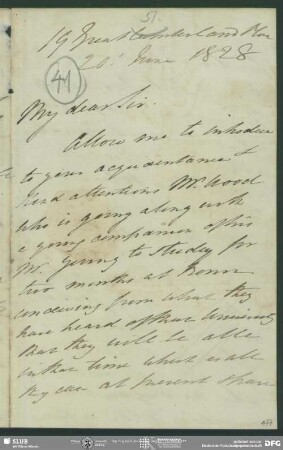 51.
19 Great Cumberland Place
20th June 1828
41
My dear Sir.
Allow me to introduce
to your acquaintance &
kind attentions Mr. Wood
who is going along with
a young companion of his
Mr. to study for
two months at Bonn
conceiving from what they
have heard of that University
that they will be able
in that time which is all
they can at present spare
SLUB
DFG